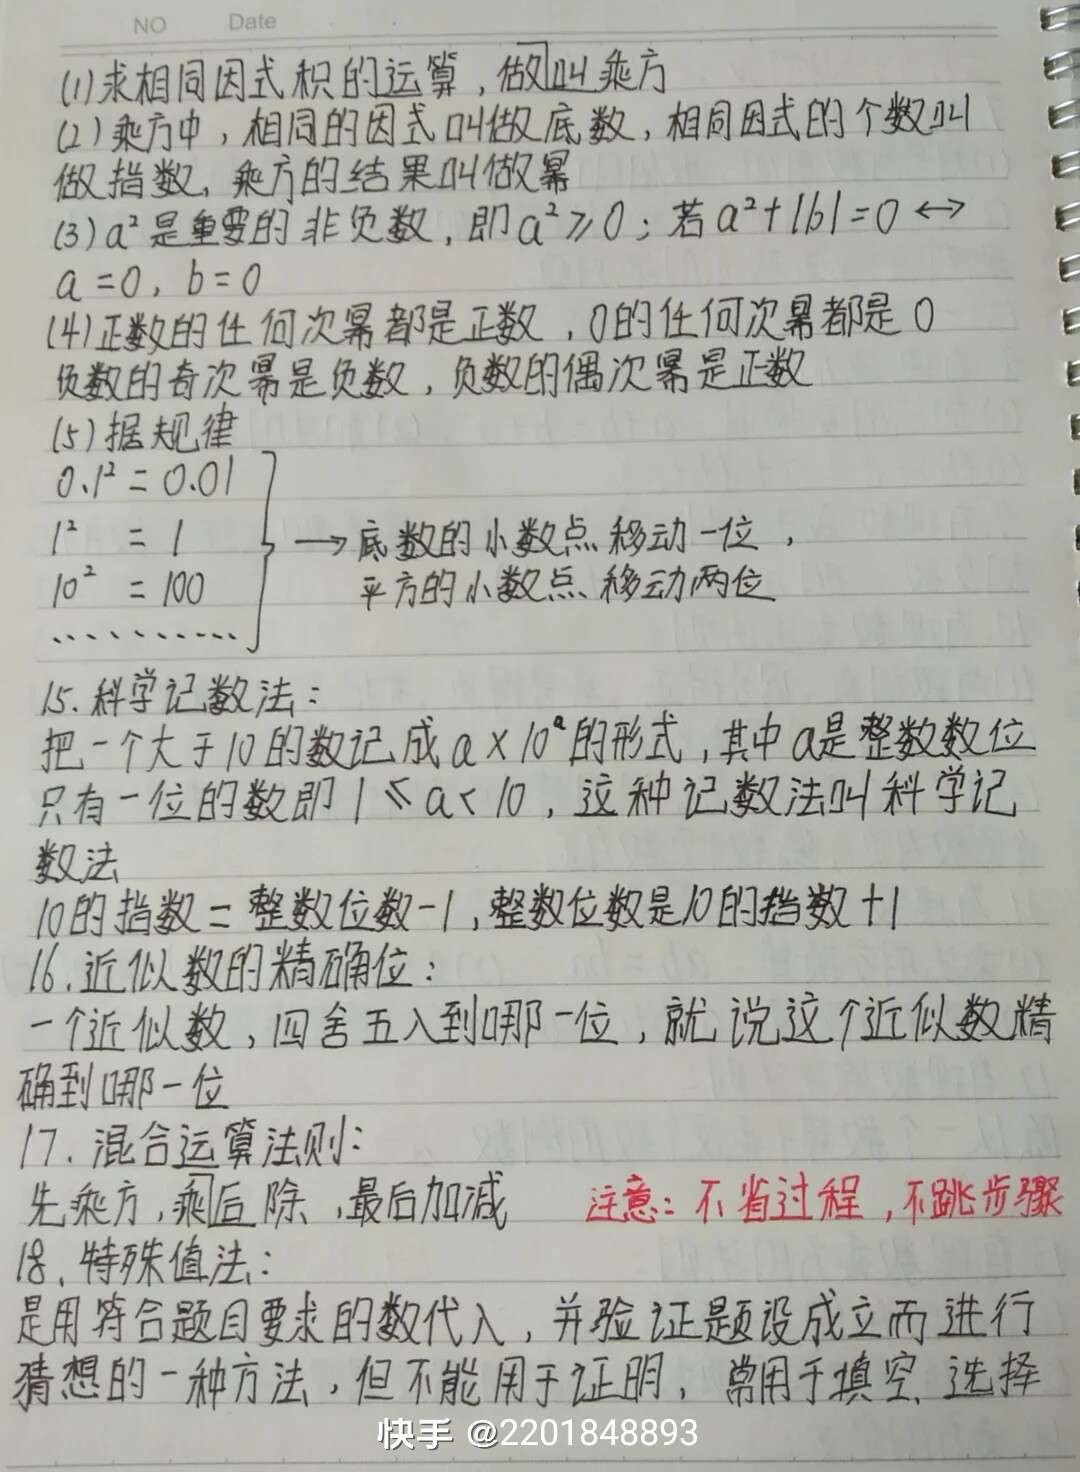 NO Date
(1)求相同因式积的运算，做叫乘方
(2)乘方中，相同的因式叫做底数，相同因式的个数叫
做指数，乘方的结果叫做幂
(3)a²是重要的非负数，即a²≥0；若a²+|b|=0↔
a=0，b=0
(4)正数的任何次幂都是正数，0的任何次幂都是0
负数的奇次幂是负数，负数的偶次幂是正数
(5)据规律
0.1²=0.01
1² = 1
10² = 100
→底数的小数点移动一位，
平方的小数点移动两位
..........
15.科学记数法：
把一个大于10的数记成a×10ᵃ的形式，其中a是整数数位
只有一位的数即1≤a<10，这种记数法叫科学记
数法
10的指数=整数位数-1，整数位数是10的指数+1
16.近似数的精确位：
一个近似数，四舍五入到哪一位，就说这个近似数精
确到哪一位
17.混合运算法则：
先乘方，乘后除，最后加减 注意：不省过程，不跳步骤
18.特殊值法：
是用符合题目要求的数代入，并验证题设成立而进行
猜想的一种方法，但不能用于证明，常用于填空、选择
快手 @2201848893